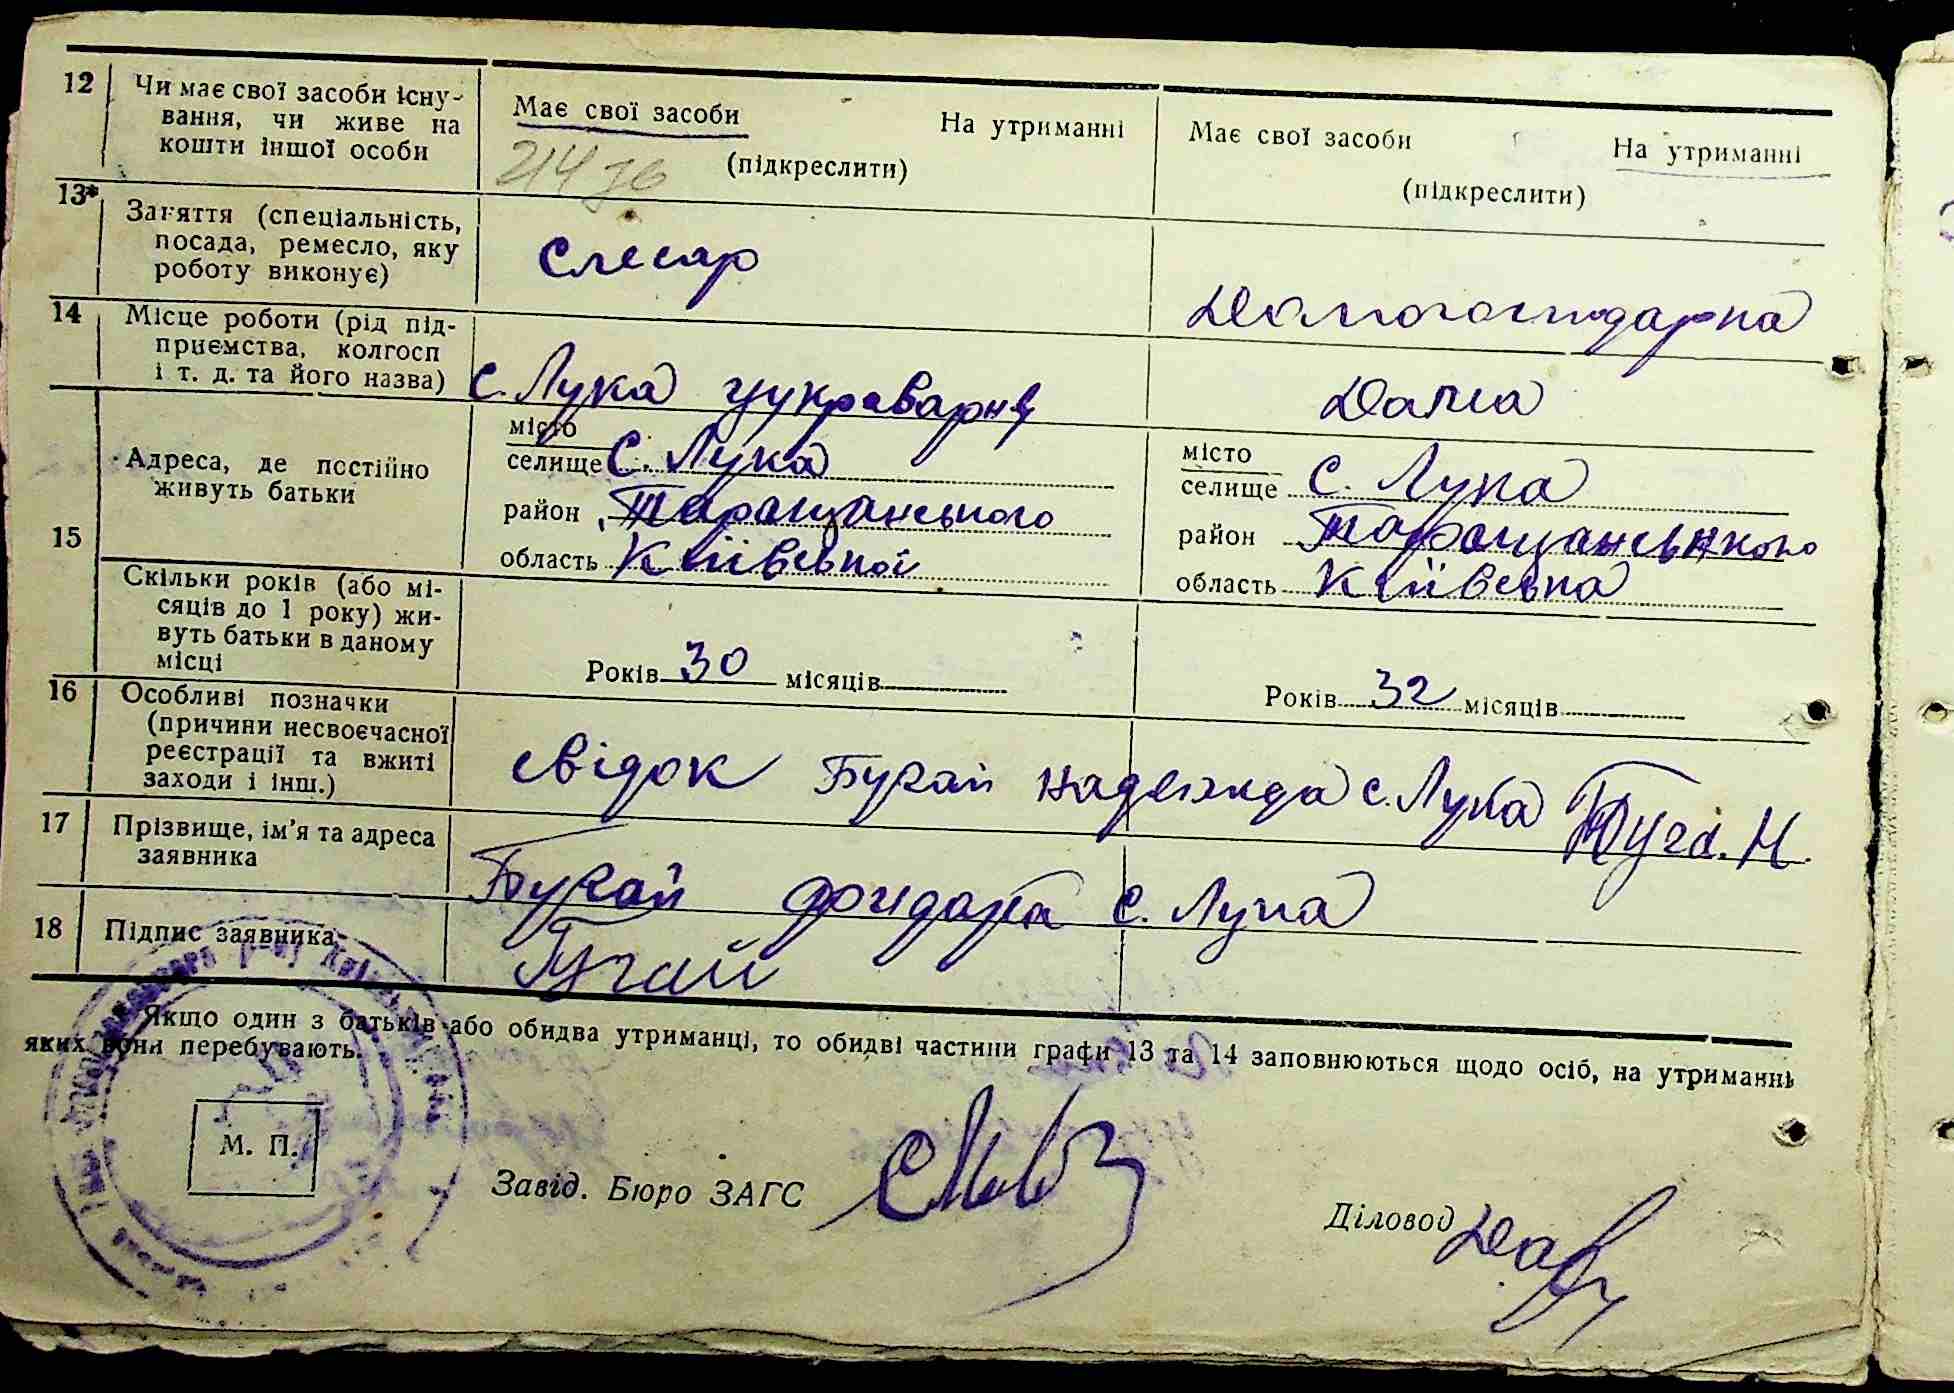 12 Чи має свої засоби існу-
вання, чи живе на
кошти іншої особи
Має свої засоби На утриманні
(підкреслити)
Має свої засоби На утриманні
(підкреслити)
13* Заняття (спеціальність,
посада, ремесло, яку
роботу виконує)
слесар
Домогосподарка
14 Місце роботи (рід під-
приємства, колгосп
і т. д. та його назва)
с. Лука цукроварня
Дома
15 Адреса, де постійно
живуть батьки
місто
селище с. Лука
район Таращанського
область Київської
місто
селище с. Лука
район Таращанського
область Київська
Скільки років (або мі-
сяців до 1 року) жи-
вуть батьки в даному
місці
Років 30 місяців
Років 32 місяців
16 Особливі позначки
(причини несвоєчасної
реєстрації та вжиті
заходи і інш.)
свідок Бугай Надежда с. Лука
17 Прізвище, ім'я та адреса
заявника
Бугай с. Лука
18 Підпис заявника
Бугай
Якщо один з батьків або обидва утриманці, то обидві частини графи 13 та 14 заповнюються щодо осіб, на утриманні
яких вони перебувають.
М. П.
Завід. Бюро ЗАГС
Діловод